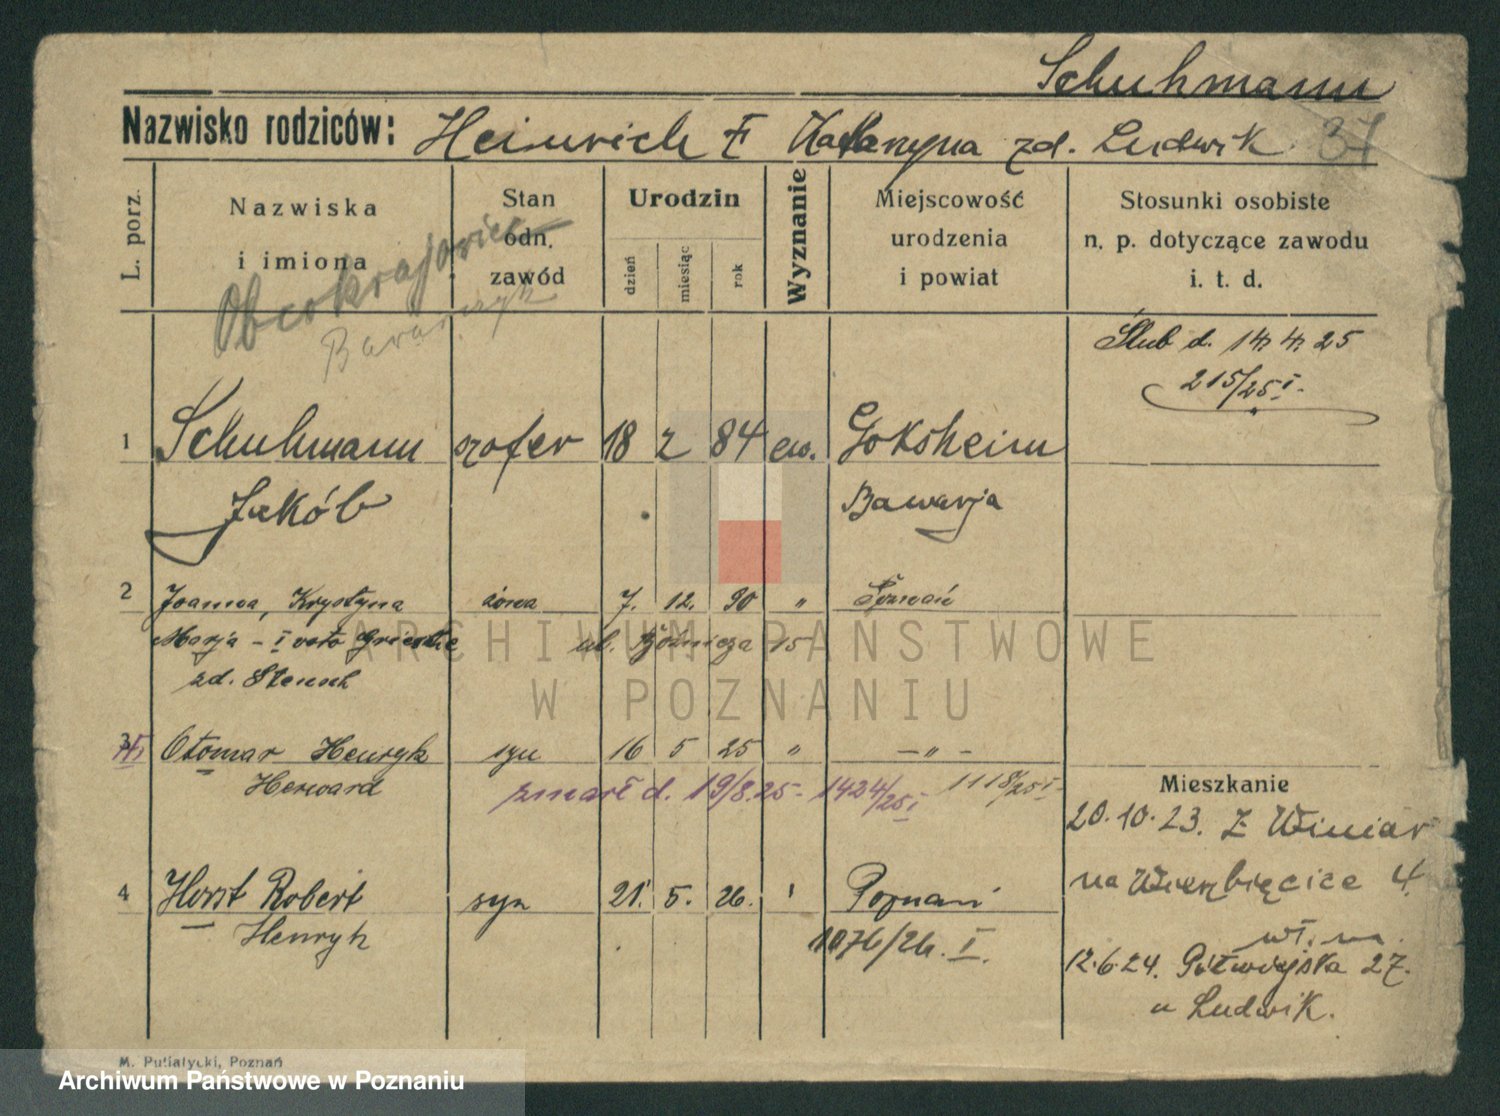 Schuhmann
Nazwisko rodziców: Heinrich i Katarzyna zd. Ludwik 37
L. porz.
Nazwiska i imiona
Stan odn. zawód
Urodzin
dzień miesiąc rok
Wyznanie
Miejscowość urodzenia i powiat
Stosunki osobiste n. p. dotyczące zawodu i t. d.
Obcokrajowiec
Bawarczyk
Ślub d. 14 4 25
215/25 I.
1 Schuhmann szofer 18 2 84 ew. Goksheim
Jakób Bawarja
2 Joanna, Krystyna żona 7. 12. 90 " Poznań
Marja - I voto
ul. Bóźnicza 15
zd.
3 Otomar Henryk syn 16 5 25 " -"-
Herward
zmarł d. 19/8.25 - 1424/25 I 1118/25 I
Mieszkanie
20.10.23. z Winiar
na Wierzbięcice 4.
4 Horst Robert syn 21. 5. 26. Poznań
Henryk 1076/26. I.
12.6.24. Półwiejska 27.
u Ludwik.
M. Putiatycki, Poznań
ARCHIWUM PAŃSTWOWE
W POZNANIU
Archiwum Państwowe w Poznaniu